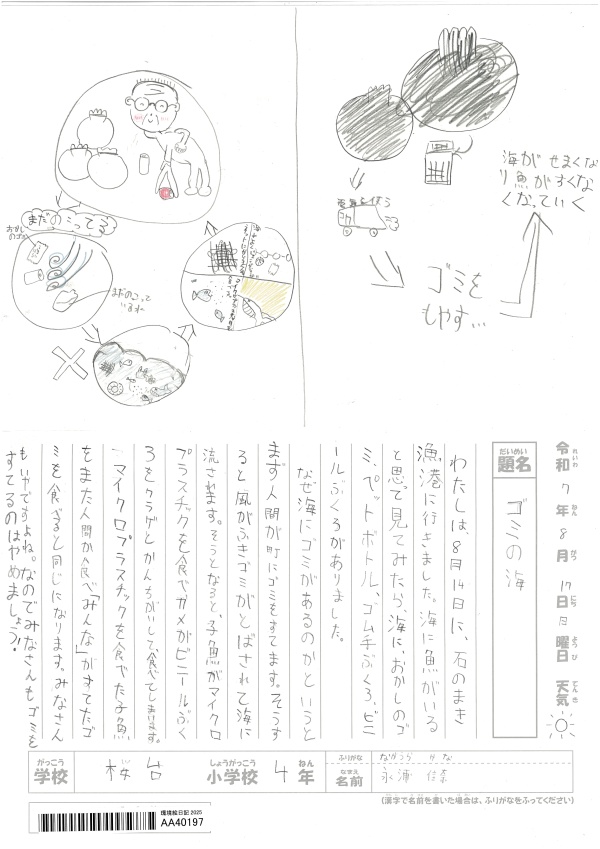 まだのこってる
おかしのゴミ
まだのこって
いるわ
電気を使う
ゴミを
もやす…
海がせまくな
り魚がすくな
くなっていく
令和7年8月17日日曜日 天気
れいわ ねん がつ にち ようび てんき
だいめい
題名 ゴミの海
わたしは、8月14日に、石のまき
漁港に行きました。海に魚がいる
と思って見てみたら、海に、おかしのゴ
ミ、ペットボトル、ゴム手ぶくろ、ビニ
ールぶくろがありました。
なぜ海にゴミがあるのかというと
まず人間が町にゴミをすてます。そうす
ると風がふきゴミがとばされて海に
流されます。そうとなると、子魚がマイクロ
プラスチックを食べカメがビニールぶく
ろをクラゲとかんちがいして食べてしまいます。
マイクロプラスチックを食べた子魚
をまた人間が食べ「みんな」がすてたゴ
ミを食べると同じになります。みなさん
もいやですよね。なのでみなさんもゴミを
すてるのはやめましょう!
がっこう しょうがっこう ねん
学校 桜台 小学校 4年
ふりがな
なまえ
名前 永浦
(漢字で名前を書いた場合は、ふりがなをふってください)
環境絵日記 2025
AA40197